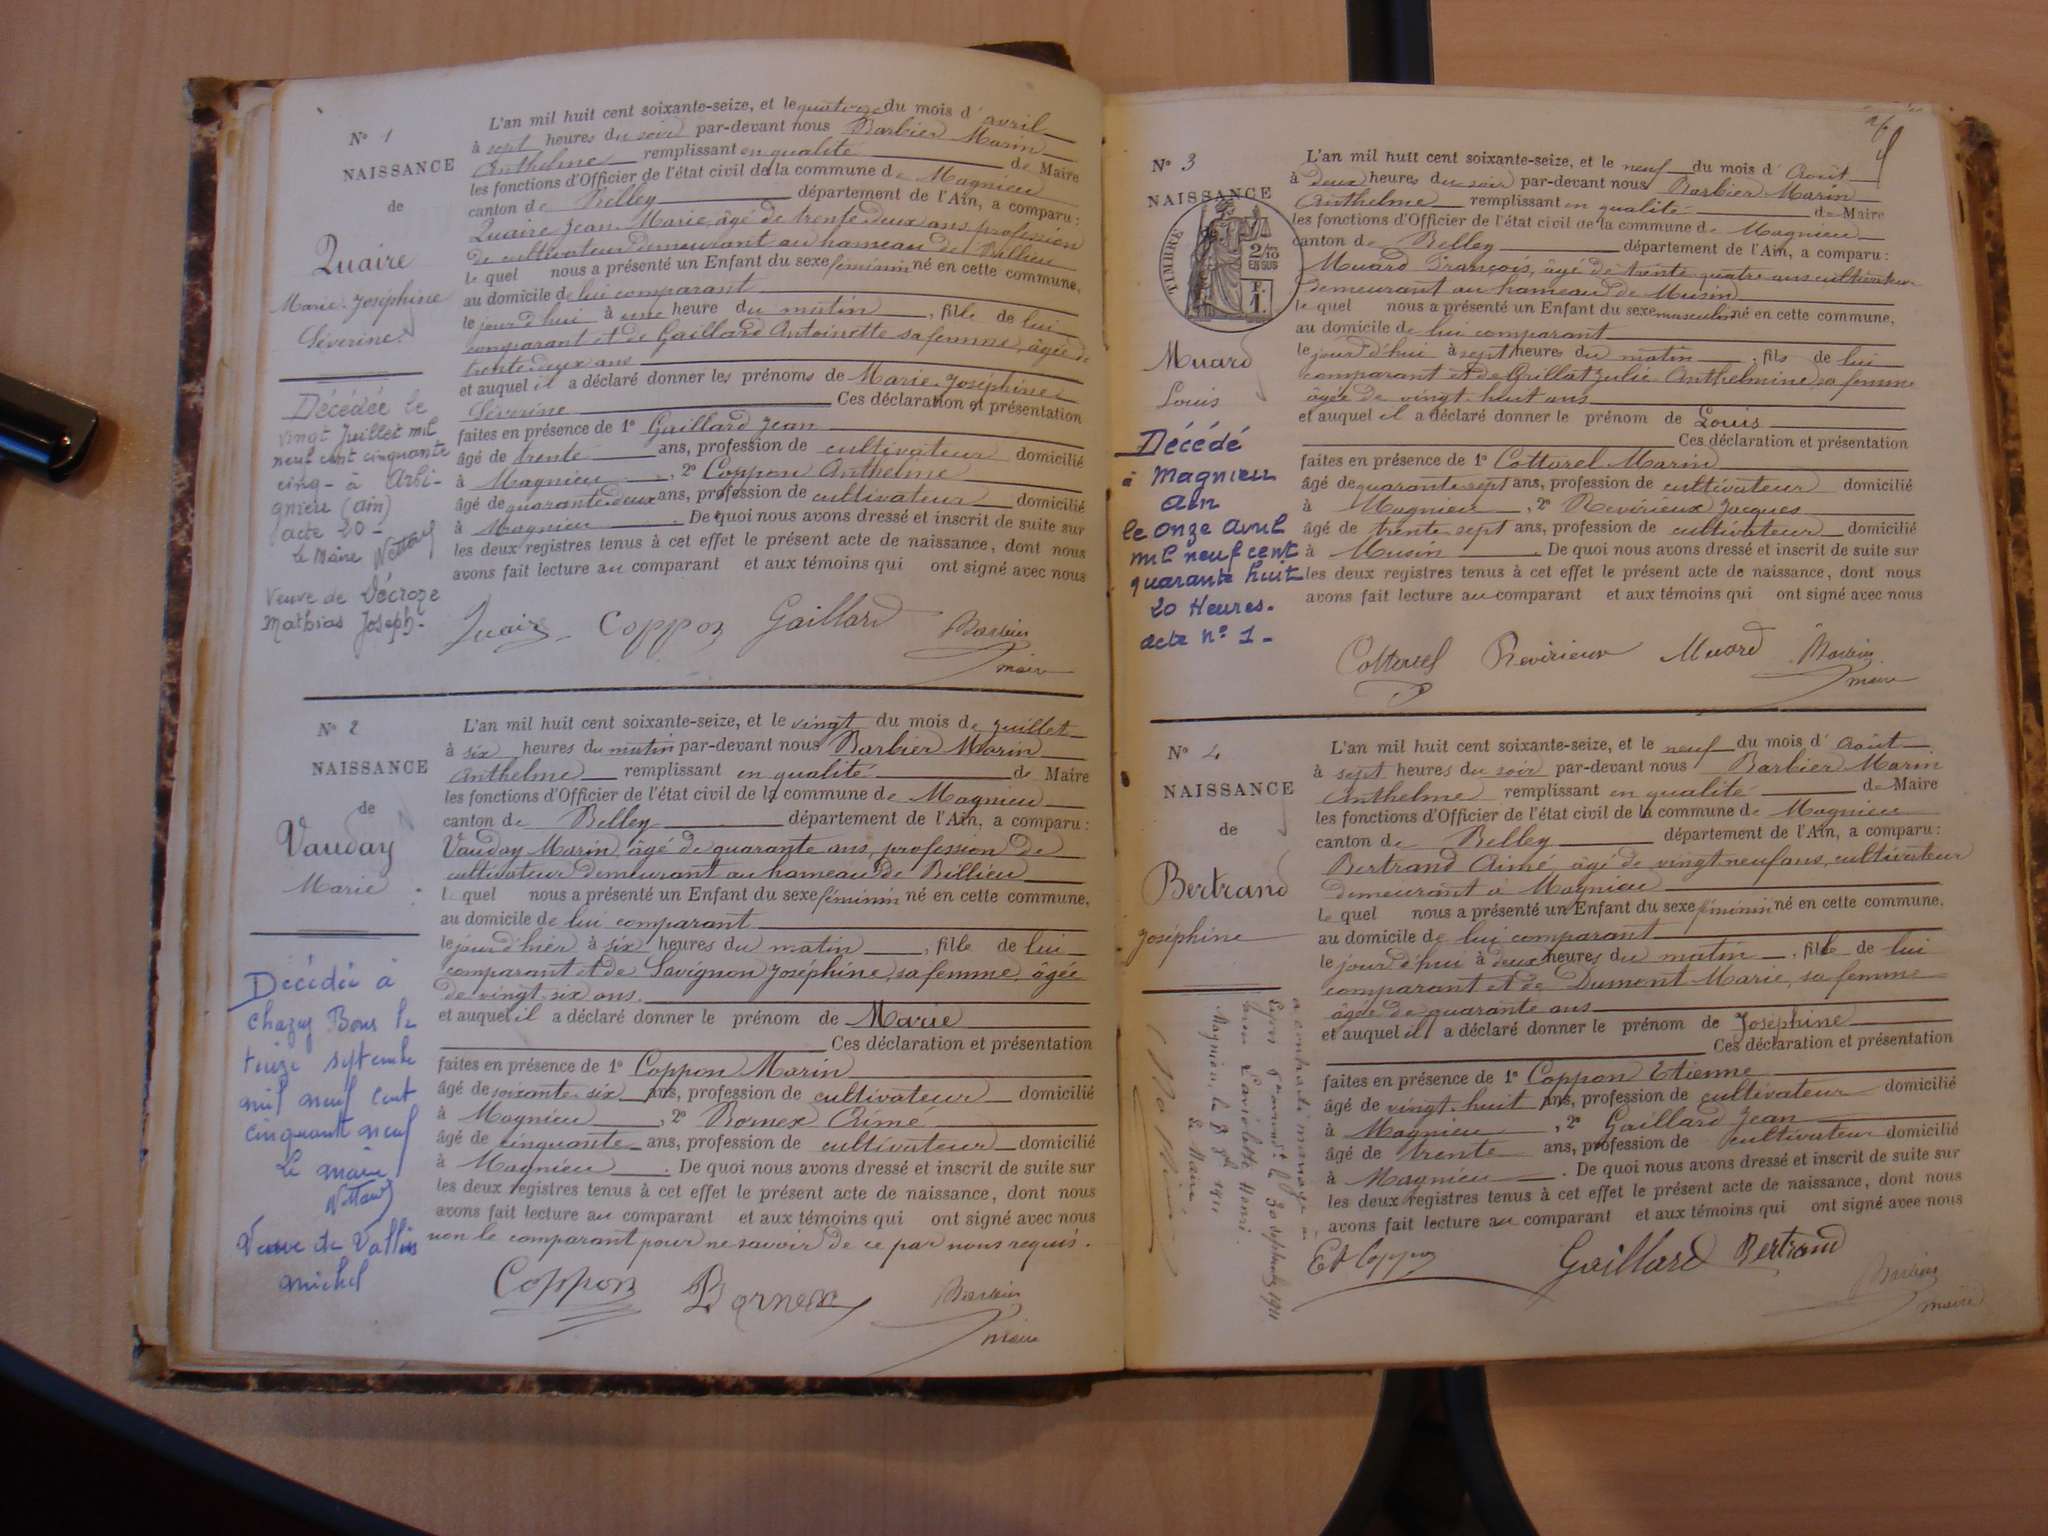 N° 1
NAISSANCE
de
Quaire
Marie-Joséphine
Séverine
Décédée le
vingt Juillet mil
neuf cent cinquante
cinq - à Arbi-
gnieu (Ain)
acte 20 -
le Maire
Veuve de Décroze
Mathias Joseph -
L'an mil huit cent soixante-seize, et le quatorze du mois d'avril
à sept heures du soir par-devant nous Barbier Marin
Anthelme remplissant en qualité de Maire
les fonctions d'Officier de l'état civil de la commune de Magnieu
canton de Belley département de l'Ain, a comparu :
Quaire Jean Marie, âgé de trente deux ans, profession
de cultivateur demeurant au hameau de Billieu
le quel nous a présenté un Enfant du sexe féminin né en cette commune,
au domicile de lui comparant
le jour d'hui à une heure du matin, fille de lui
comparant et de Gaillard Antoinette sa femme, âgée de
trente deux ans
et auquel il a déclaré donner les prénoms de Marie-Joséphine
Séverine Ces déclaration et présentation
faites en présence de 1° Gaillard Jean
âgé de trente ans, profession de cultivateur domicilié
à Magnieu, 2° Coppon Anthelme
âgé de quarante deux ans, profession de cultivateur domicilié
à Magnieu. De quoi nous avons dressé et inscrit de suite sur
les deux registres tenus à cet effet le présent acte de naissance, dont nous
avons fait lecture au comparant et aux témoins qui ont signé avec nous
Quaire Coppon Gaillard Barbier
maire
N° 2
NAISSANCE
de
Vauday
Marie
Décédée à
Chazey Bons le
treize septembre
mil neuf cent
cinquante neuf
Le maire
Veuve de Vallin
michel
L'an mil huit cent soixante-seize, et le vingt du mois de Juillet
à six heures du matin par-devant nous Barbier Marin
Anthelme remplissant en qualité de Maire
les fonctions d'Officier de l'état civil de la commune de Magnieu
canton de Belley département de l'Ain, a comparu :
Vauday Marin, âgé de quarante ans, profession de
cultivateur demeurant au hameau de Billieu
le quel nous a présenté un Enfant du sexe féminin né en cette commune,
au domicile de lui comparant
le jour d'hier à six heures du matin, fille de lui
comparant et de Savignon Joséphine, sa femme, âgée
de vingt-six ans.
et auquel il a déclaré donner le prénom de Marie
Ces déclaration et présentation
faites en présence de 1° Coppon Marin
âgé de soixante six ans, profession de cultivateur domicilié
à Magnieu, 2° Bornex Aimé
âgé de cinquante ans, profession de cultivateur domicilié
à Magnieu. De quoi nous avons dressé et inscrit de suite sur
les deux registres tenus à cet effet le présent acte de naissance, dont nous
avons fait lecture au comparant et aux témoins qui ont signé avec nous
non le comparant pour ne savoir de ce par nous requis.
Coppon Bornex Barbier
maire
N° 3
NAISSANCE
TIMBRE
2/10
EN SUS
F.
1.
Muard
Louis
Décédé
à Magnieu
Ain
le onze Avril
mil neuf cent
quarante huit
20 Heures.
acte n° 1 -
L'an mil huit cent soixante-seize, et le neuf du mois d'Août
à deux heures du soir par-devant nous Barbier Marin
Anthelme remplissant en qualité de Maire
les fonctions d'Officier de l'état civil de la commune de Magnieu
canton de Belley département de l'Ain, a comparu :
Muard François, âgé de trente-quatre ans cultivateur
demeurant au hameau de Musin
le quel nous a présenté un Enfant du sexe masculin né en cette commune,
au domicile de lui comparant
le jour d'hui à sept heures du matin, fils de lui
comparant et de Grillat Julie Anthelmine sa femme
âgée de vingt huit ans
et auquel il a déclaré donner le prénom de Louis
Ces déclaration et présentation
faites en présence de 1° Cottarel Marin
âgé de quarante-sept ans, profession de cultivateur domicilié
à Magnieu, 2° Revirieux Jacques
âgé de trente sept ans, profession de cultivateur domicilié
à Musin. De quoi nous avons dressé et inscrit de suite sur
les deux registres tenus à cet effet le présent acte de naissance, dont nous
avons fait lecture au comparant et aux témoins qui ont signé avec nous
Cottarel Revirieux Muard Barbier
maire
N° 4
NAISSANCE
de
Bertrand
Joséphine
a contracté mariage à
Lyon le 30 septembre 1911
avec Henri.
Magnieu, le 8 1911
Le Maire,
L'an mil huit cent soixante-seize, et le neuf du mois d'Août
à sept heures du soir par-devant nous Barbier Marin
Anthelme remplissant en qualité de Maire
les fonctions d'Officier de l'état civil de la commune de Magnieu
canton de Belley département de l'Ain, a comparu :
Bertrand Aimé, âgé de vingt-neuf ans, cultivateur
demeurant à Magnieu
le quel nous a présenté un Enfant du sexe féminin né en cette commune,
au domicile de lui comparant
le jour d'hui à deux heures du matin, fille de lui
comparant et de Dumont Marie, sa femme
âgée de quarante ans
et auquel il a déclaré donner le prénom de Joséphine
Ces déclaration et présentation
faites en présence de 1° Coppon Etienne
âgé de vingt-huit ans, profession de cultivateur domicilié
à Magnieu, 2° Gaillard Jean
âgé de trente ans, profession de cultivateur domicilié
à Magnieu. De quoi nous avons dressé et inscrit de suite sur
les deux registres tenus à cet effet le présent acte de naissance, dont nous
avons fait lecture au comparant et aux témoins qui ont signé avec nous
Et Coppon Gaillard Bertrand
Barbier
maire